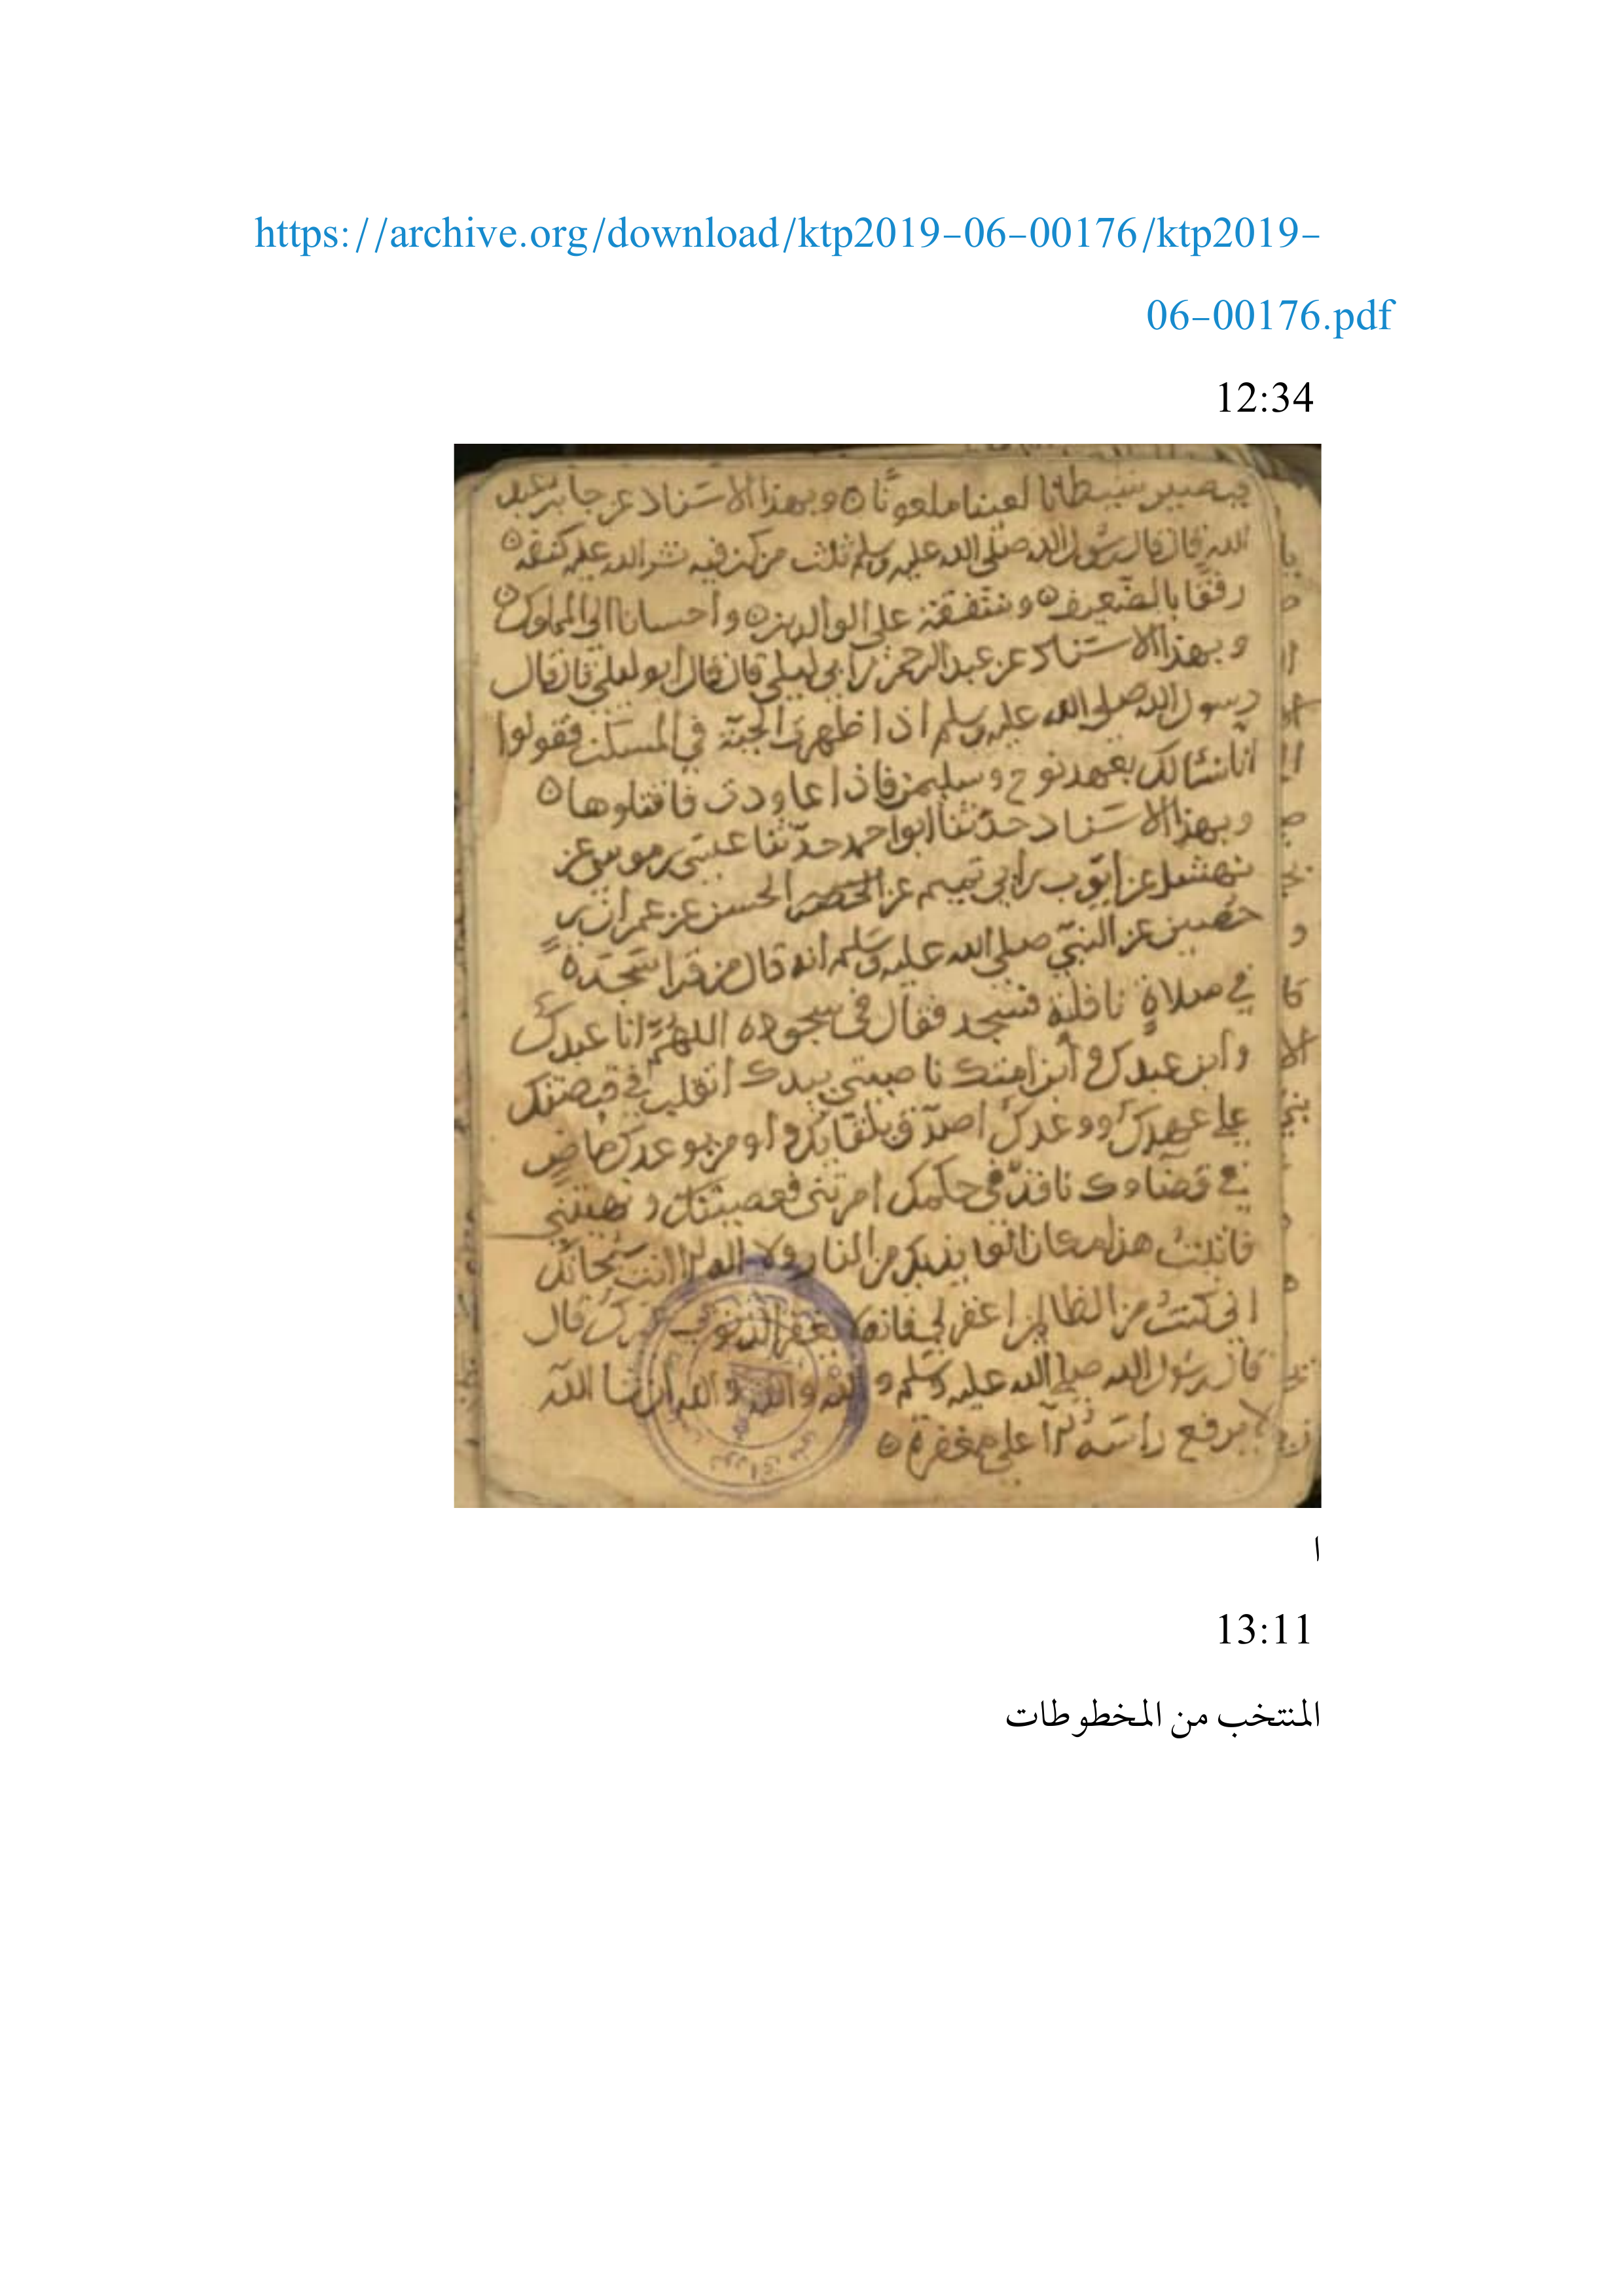 https://archive.org/download/ktp2019-06-00176/ktp2019-
06-00176.pdf
12:34
فيصير شيطانا لعينا ملعونا ه وبهذا الاسناد عن جابر بن عبد
الله قال قال رسول الله صلى الله عليه وسلم ثلث من كن فيه نشر الله عليه كنفه ه
رفقا بالضعيف ه وشفقة على الوالدين ه واحسانا الى المملوك ه
وبهذا الاسناد عن عبد الرحمن بن ابي ليلى قال قال ابو ليلى قال قال
رسول الله صلى الله عليه وسلم اذا ظهرت الحية في المسكن فقولوا
انا نسالك بعهد نوح وسليمن فاذا عاودت فاقتلوها ه
وبهذا الاسناد حدثنا ابو احمد حدثنا عيسى بن موسى عن
نهشل عن ايوب بن ابي تميم عن الحسن عن عمران بن
حصين عن النبي صلى الله عليه وسلم انه قال من قرا سجدة
في صلاة نافلة فسجد فقال في سجوده اللهم انا عبدك
وابن عبدك وابن امتك ناصيتي بيدك اتقلب في قبضتك
على عهدك ووعدك اصدق بلقائك واومن بوعدك ماض
في قضاوك نافذ في حكمك امرتني فعصيتك ونهيتني
هذا مكان العايذ بك من النار ولا اله الا انت سبحانك
اني كنت من الظالمين اغفر لي فانه لا يغفر الذنوب غيرك قال
قال رسول الله صلى الله عليه وسلم والله والله والله ان شا الله
لا يرفع راسه الا على مغفرة ه
ا
13:11
المنتخب من المخطوطات